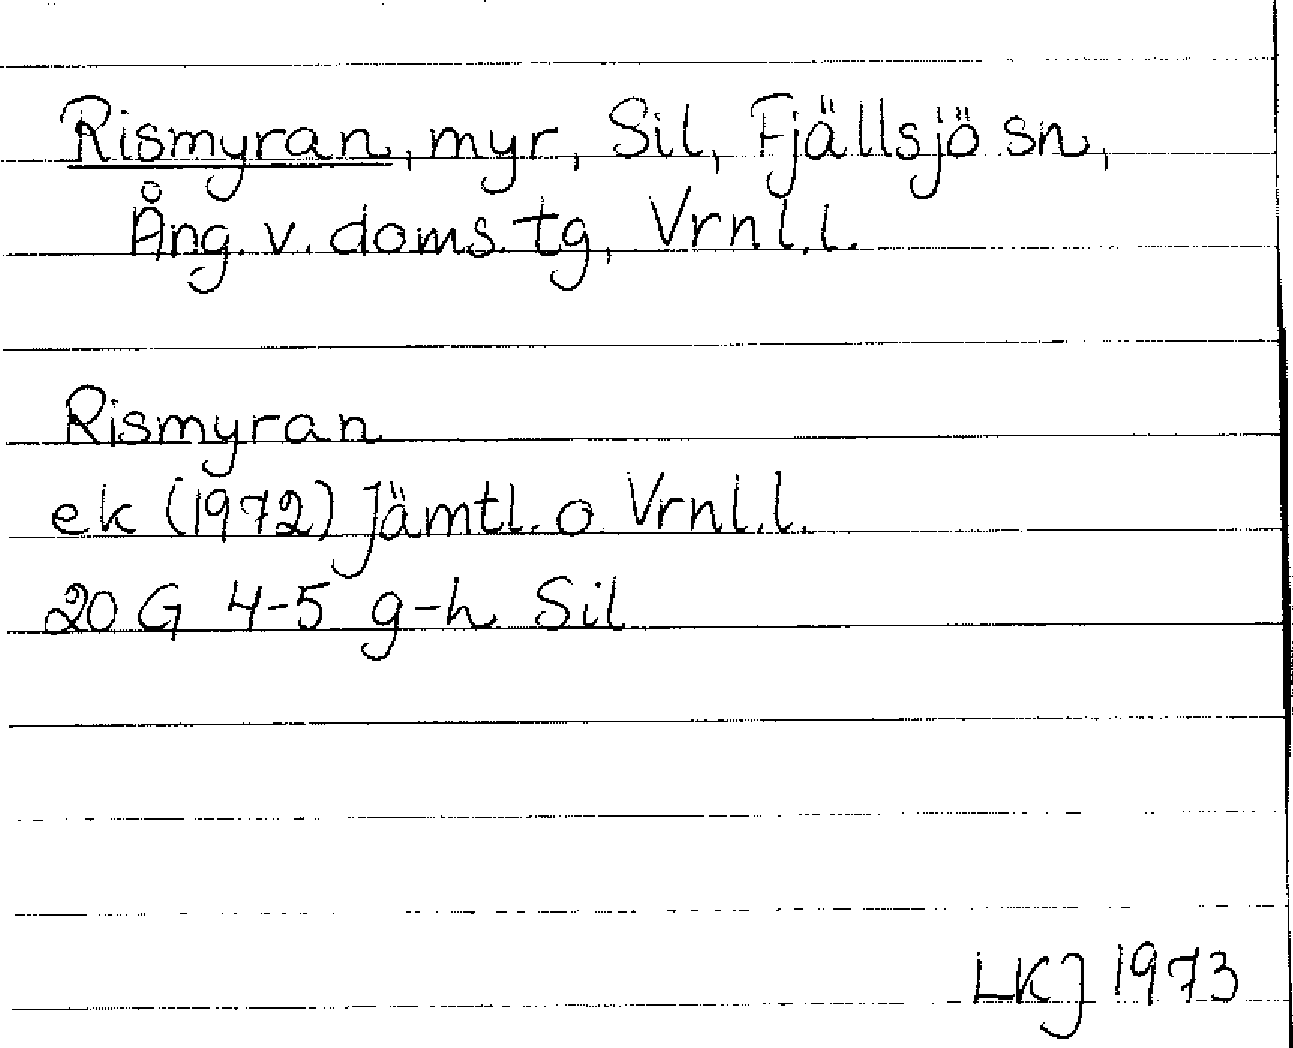 Rismyran, myr, Sil, Fjällsjö sn,
Ång. v. doms. tg, Vrnl.l.
Rismyran
ek (1972) Jämtl. o Vrnl.l.
20 G 4-5 g-h Sil
LKJ 1973